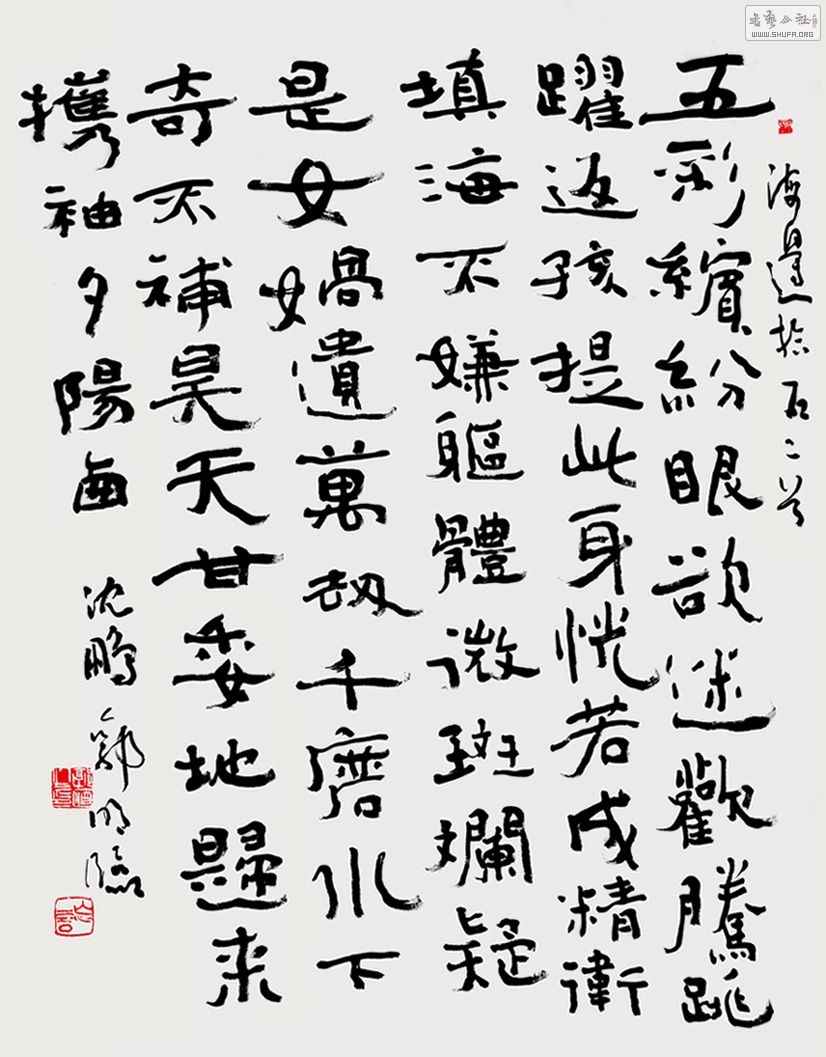 書藝公社
WWW.SHUFA.ORG
海邊拾石二首
五彩繽紛眼欲迷歡騰跳
躍返孩提此身恍若成精衛
填海不嫌軀體微斑斕疑
是女媧遺萬劫千磨水下
奇不補昊天甘委地歸來
攜袖夕陽西
沈鵬 明臨